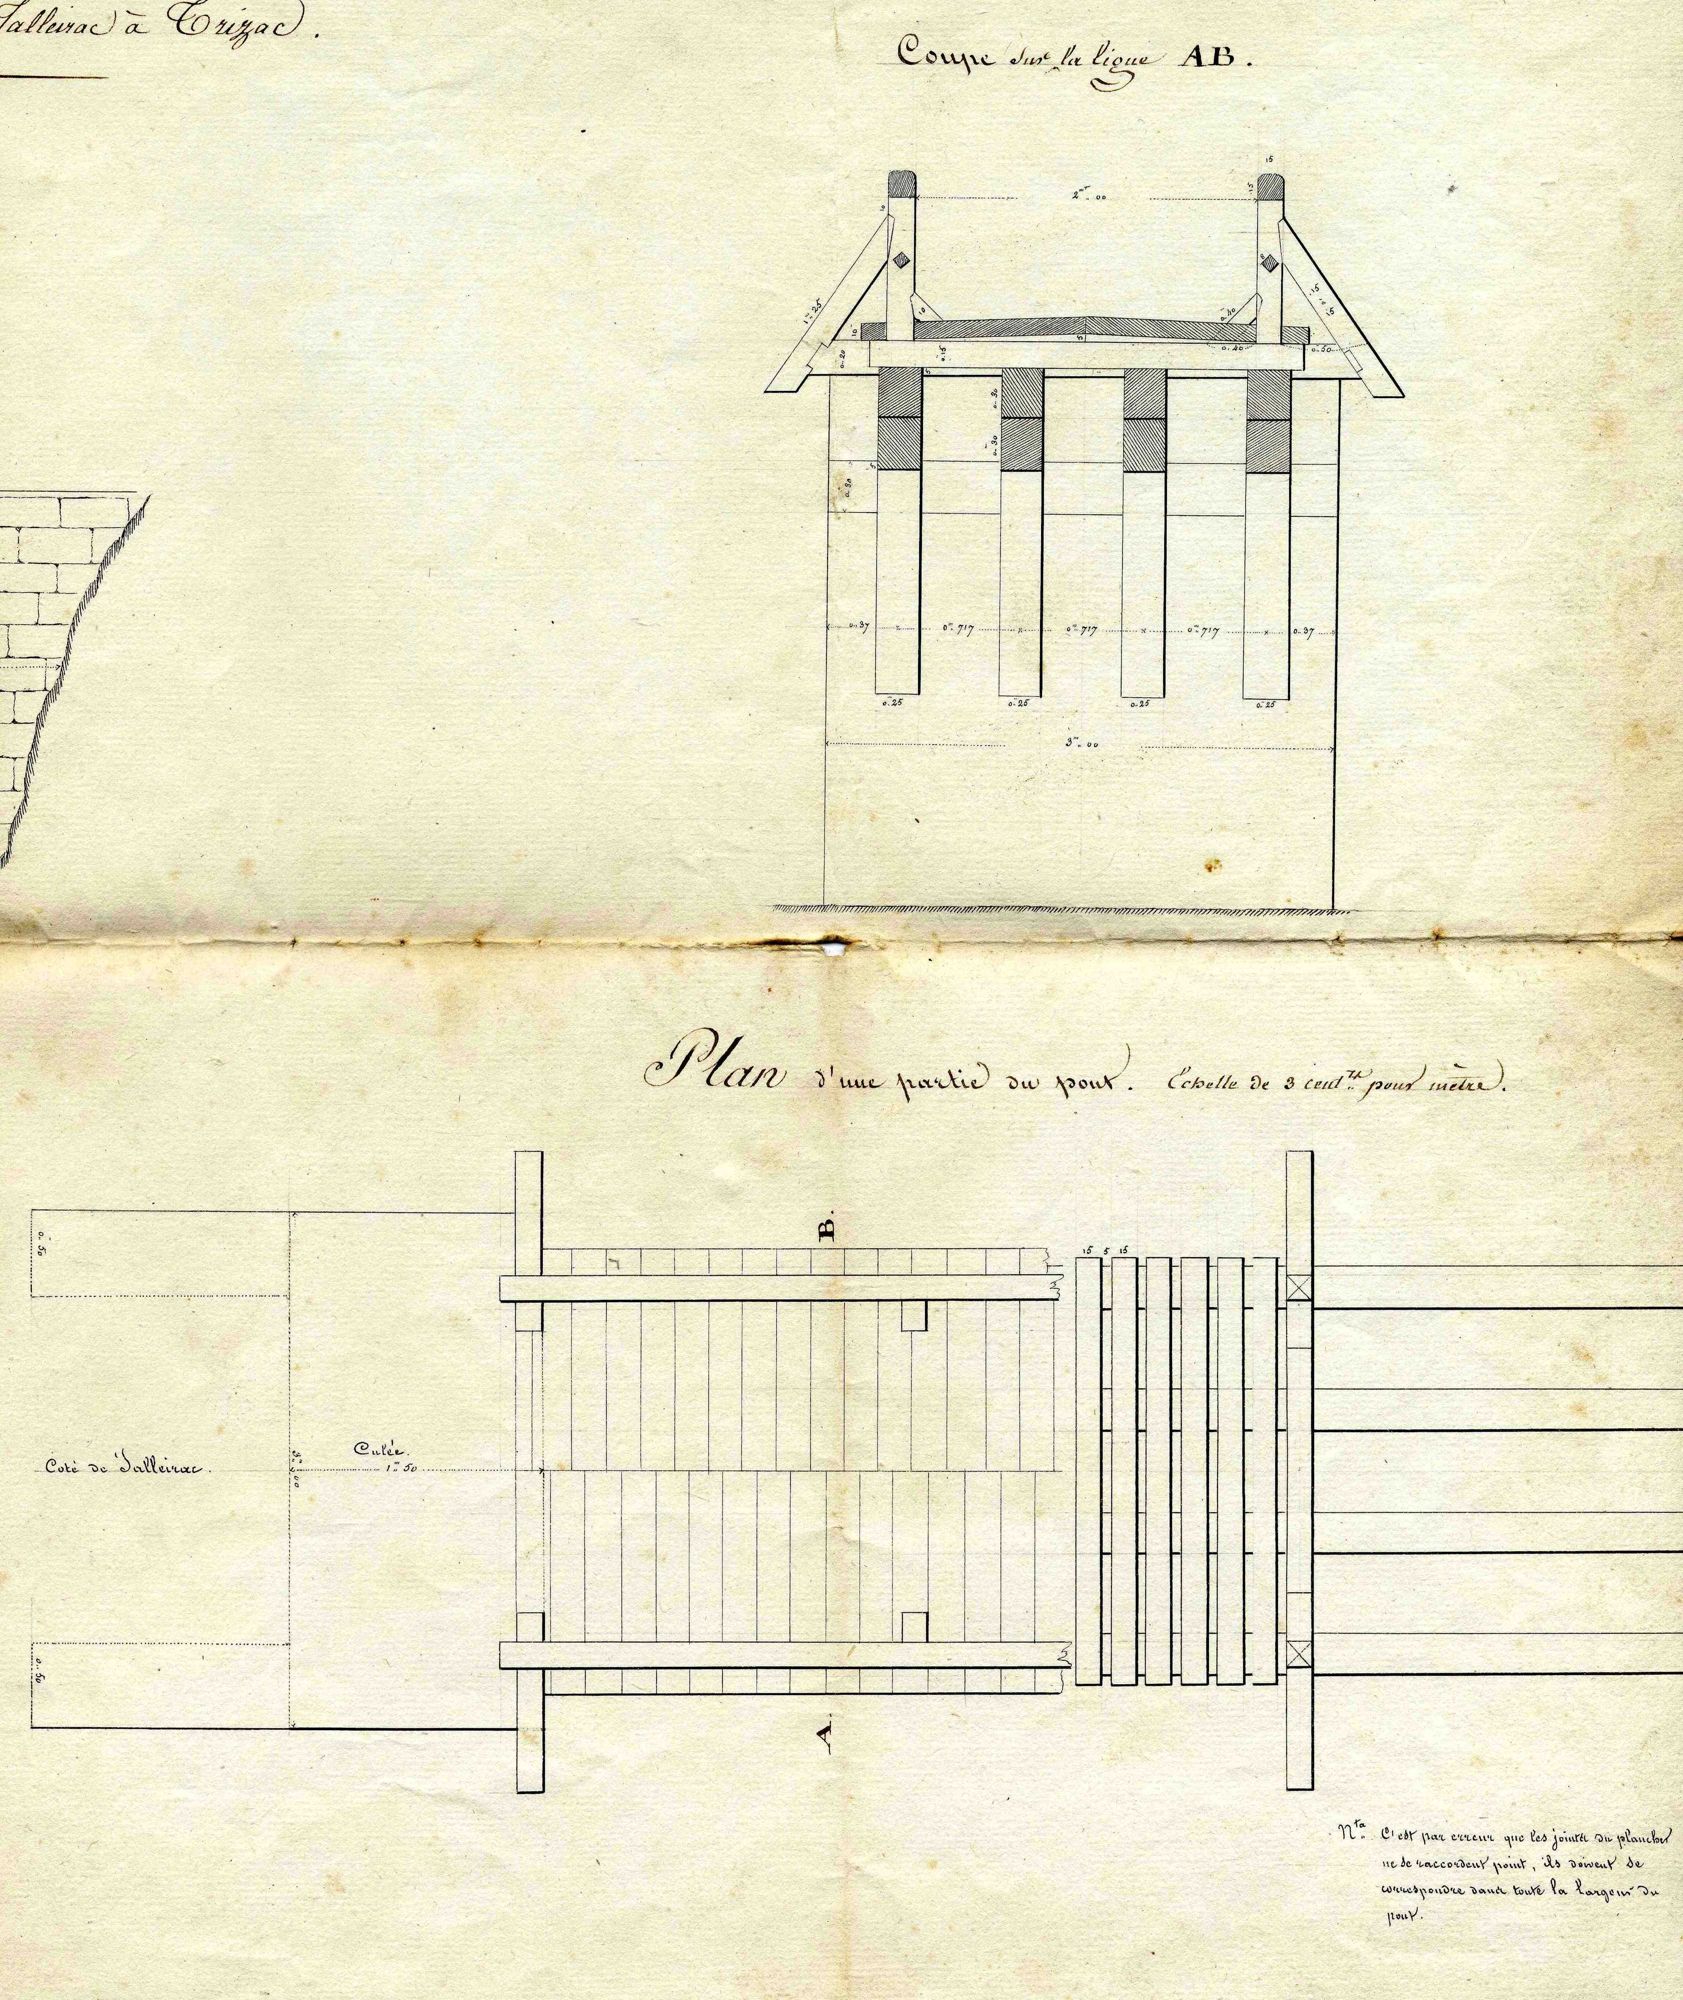 Salleirac à Trizac.
Coupe sur la ligne AB.
15
15
2m.00
1m.25
15
15
10
10
0m.40
0m.20
0m.15
5
0m.40
0m.50
0m.30
0m.30
0m.30
0.37
0m.717
0m.717
0m.717
0m.37
0m.25
0m.25
0m.25
0m.25
3m.00
Plan d'une partie du pont. Echelle de 3 centes pour mètre.
B.
15 5 15
0m.50
Culée.
1m.50
Coté de Salleirac.
0m.50
A.
Nta. C'est par erreur que les joints du plancher
ne se raccordent point, ils doivent se
correspondre dans toute la largeur du
pont.